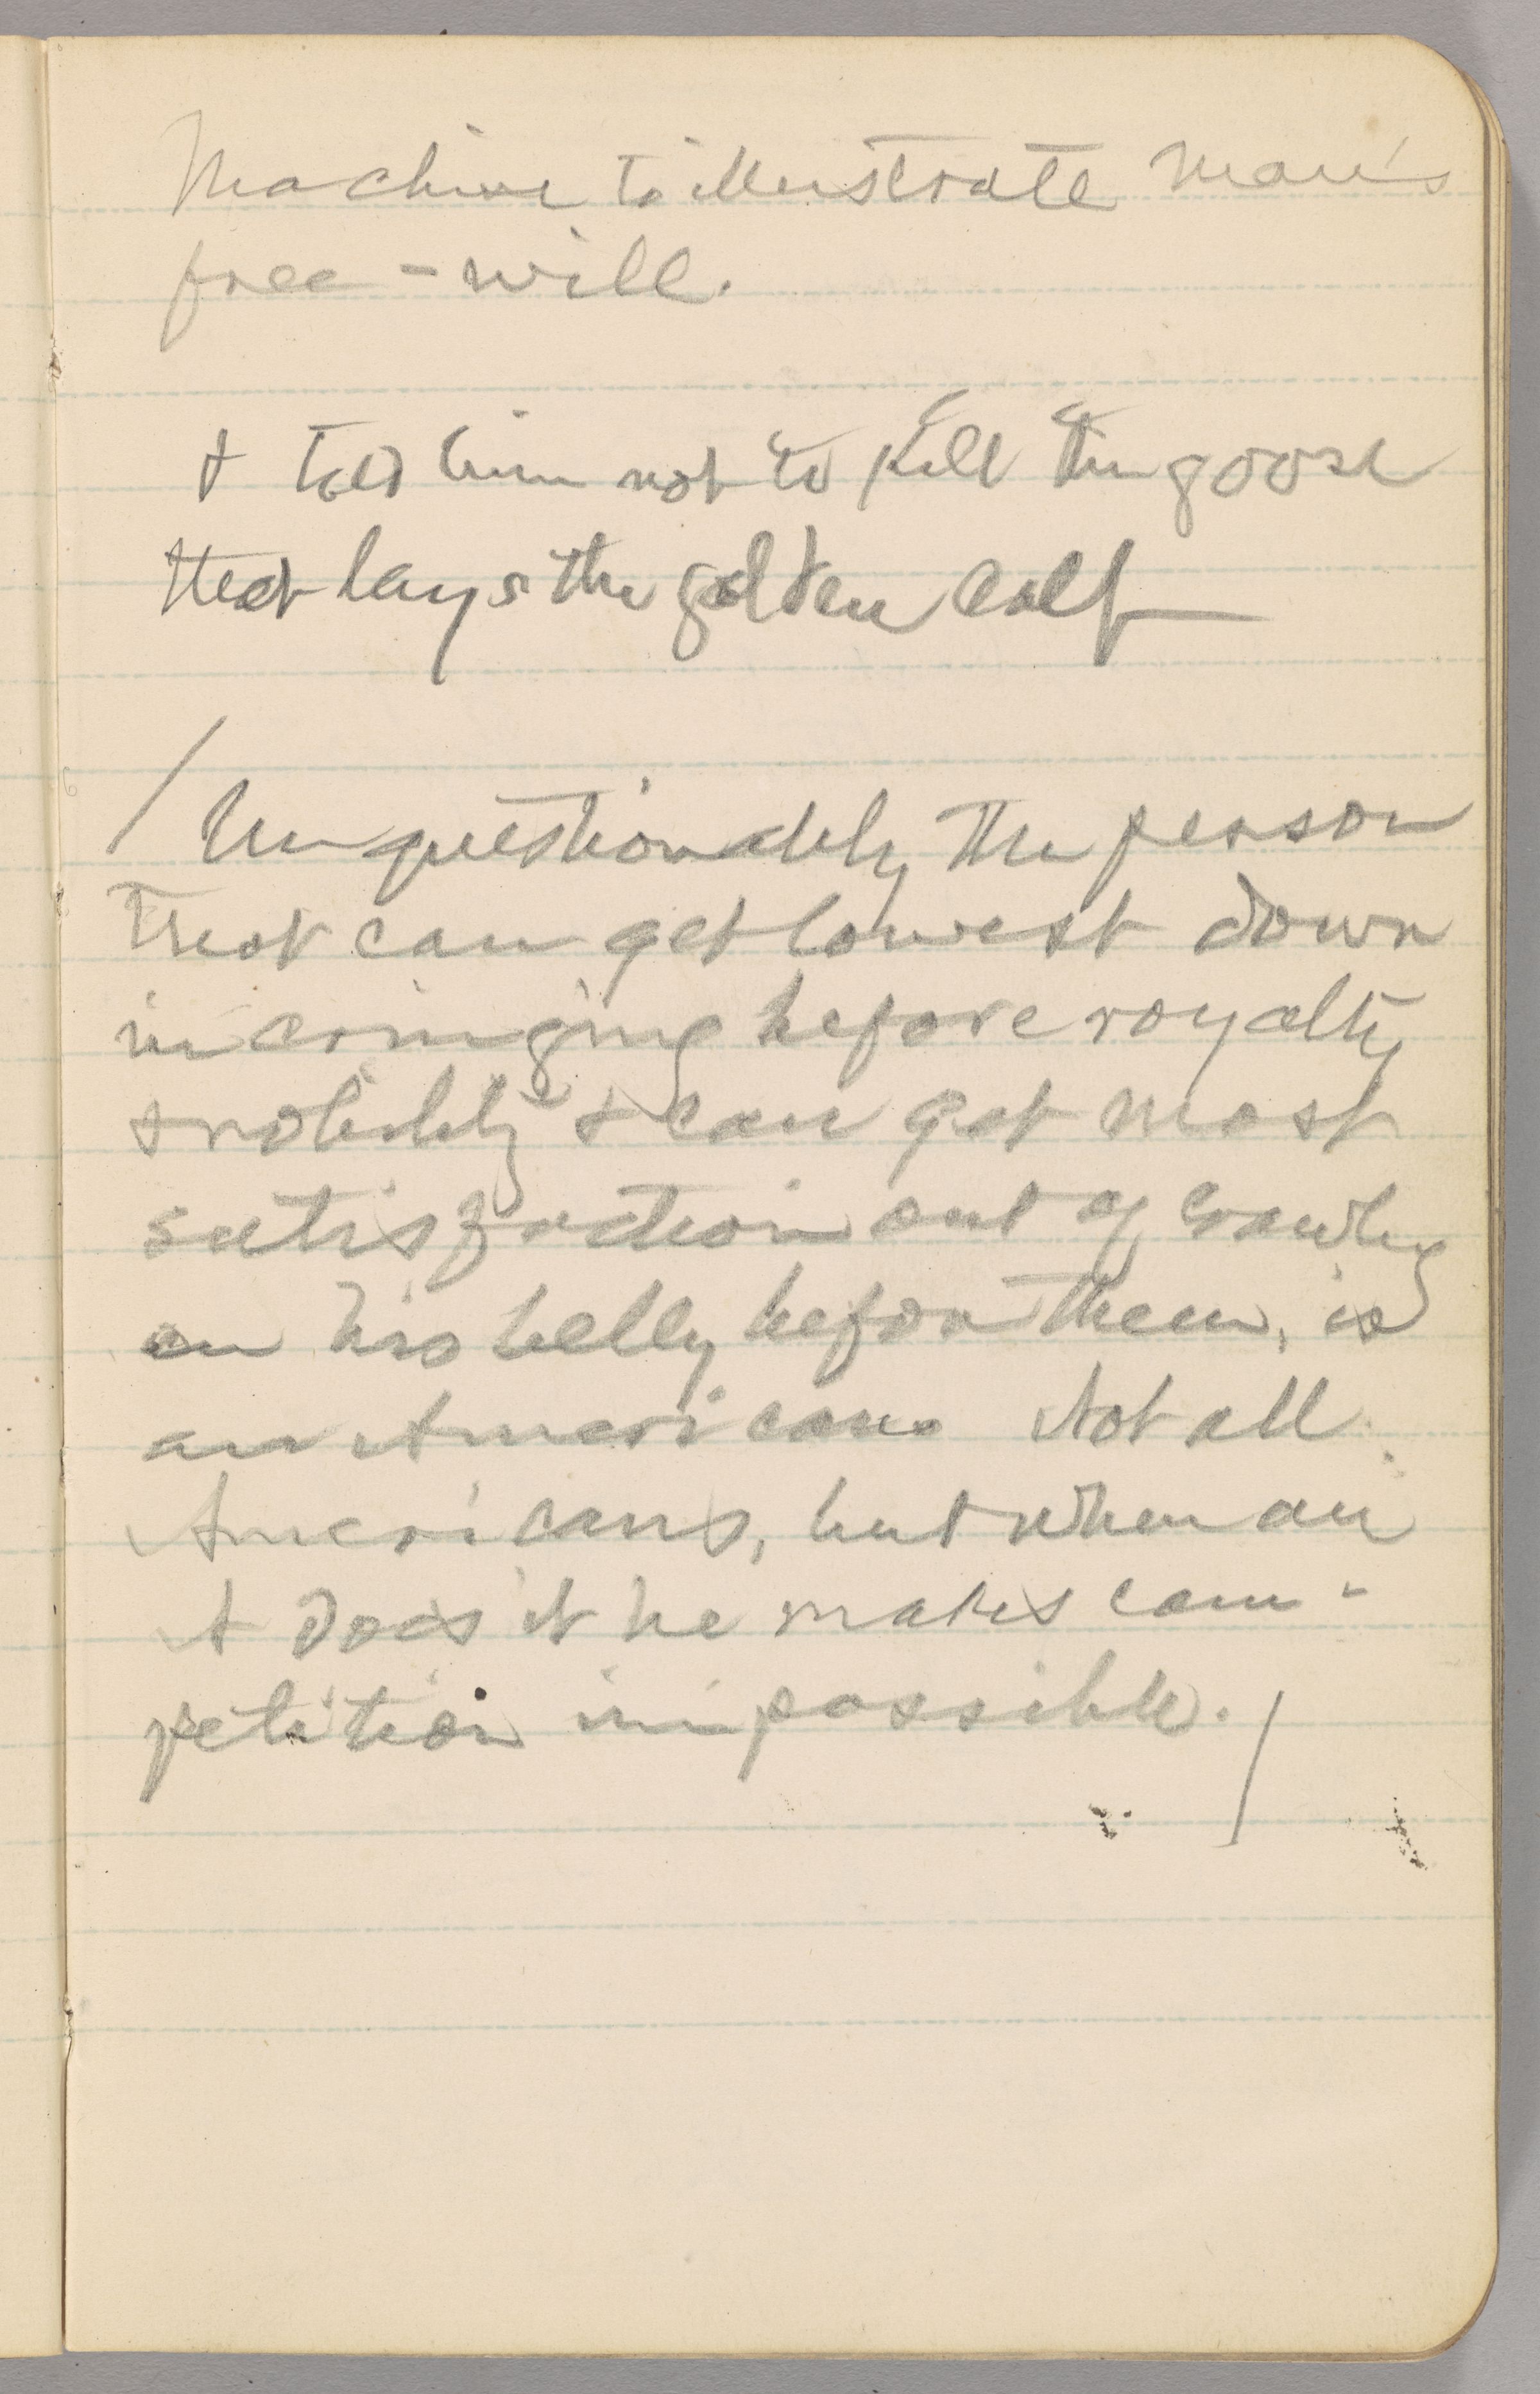 Machine to illustrate man's
free-will.
& told him not to kill the goose
that lays the golden calf
/ Unquestionably the person
that can get lowest down
in cringing before royalty
& nobility & can get most
satisfaction out of crawling
on his belly before them, is
an American. Not all
Americans, but when an
A does it he makes com-
petition impossible. /